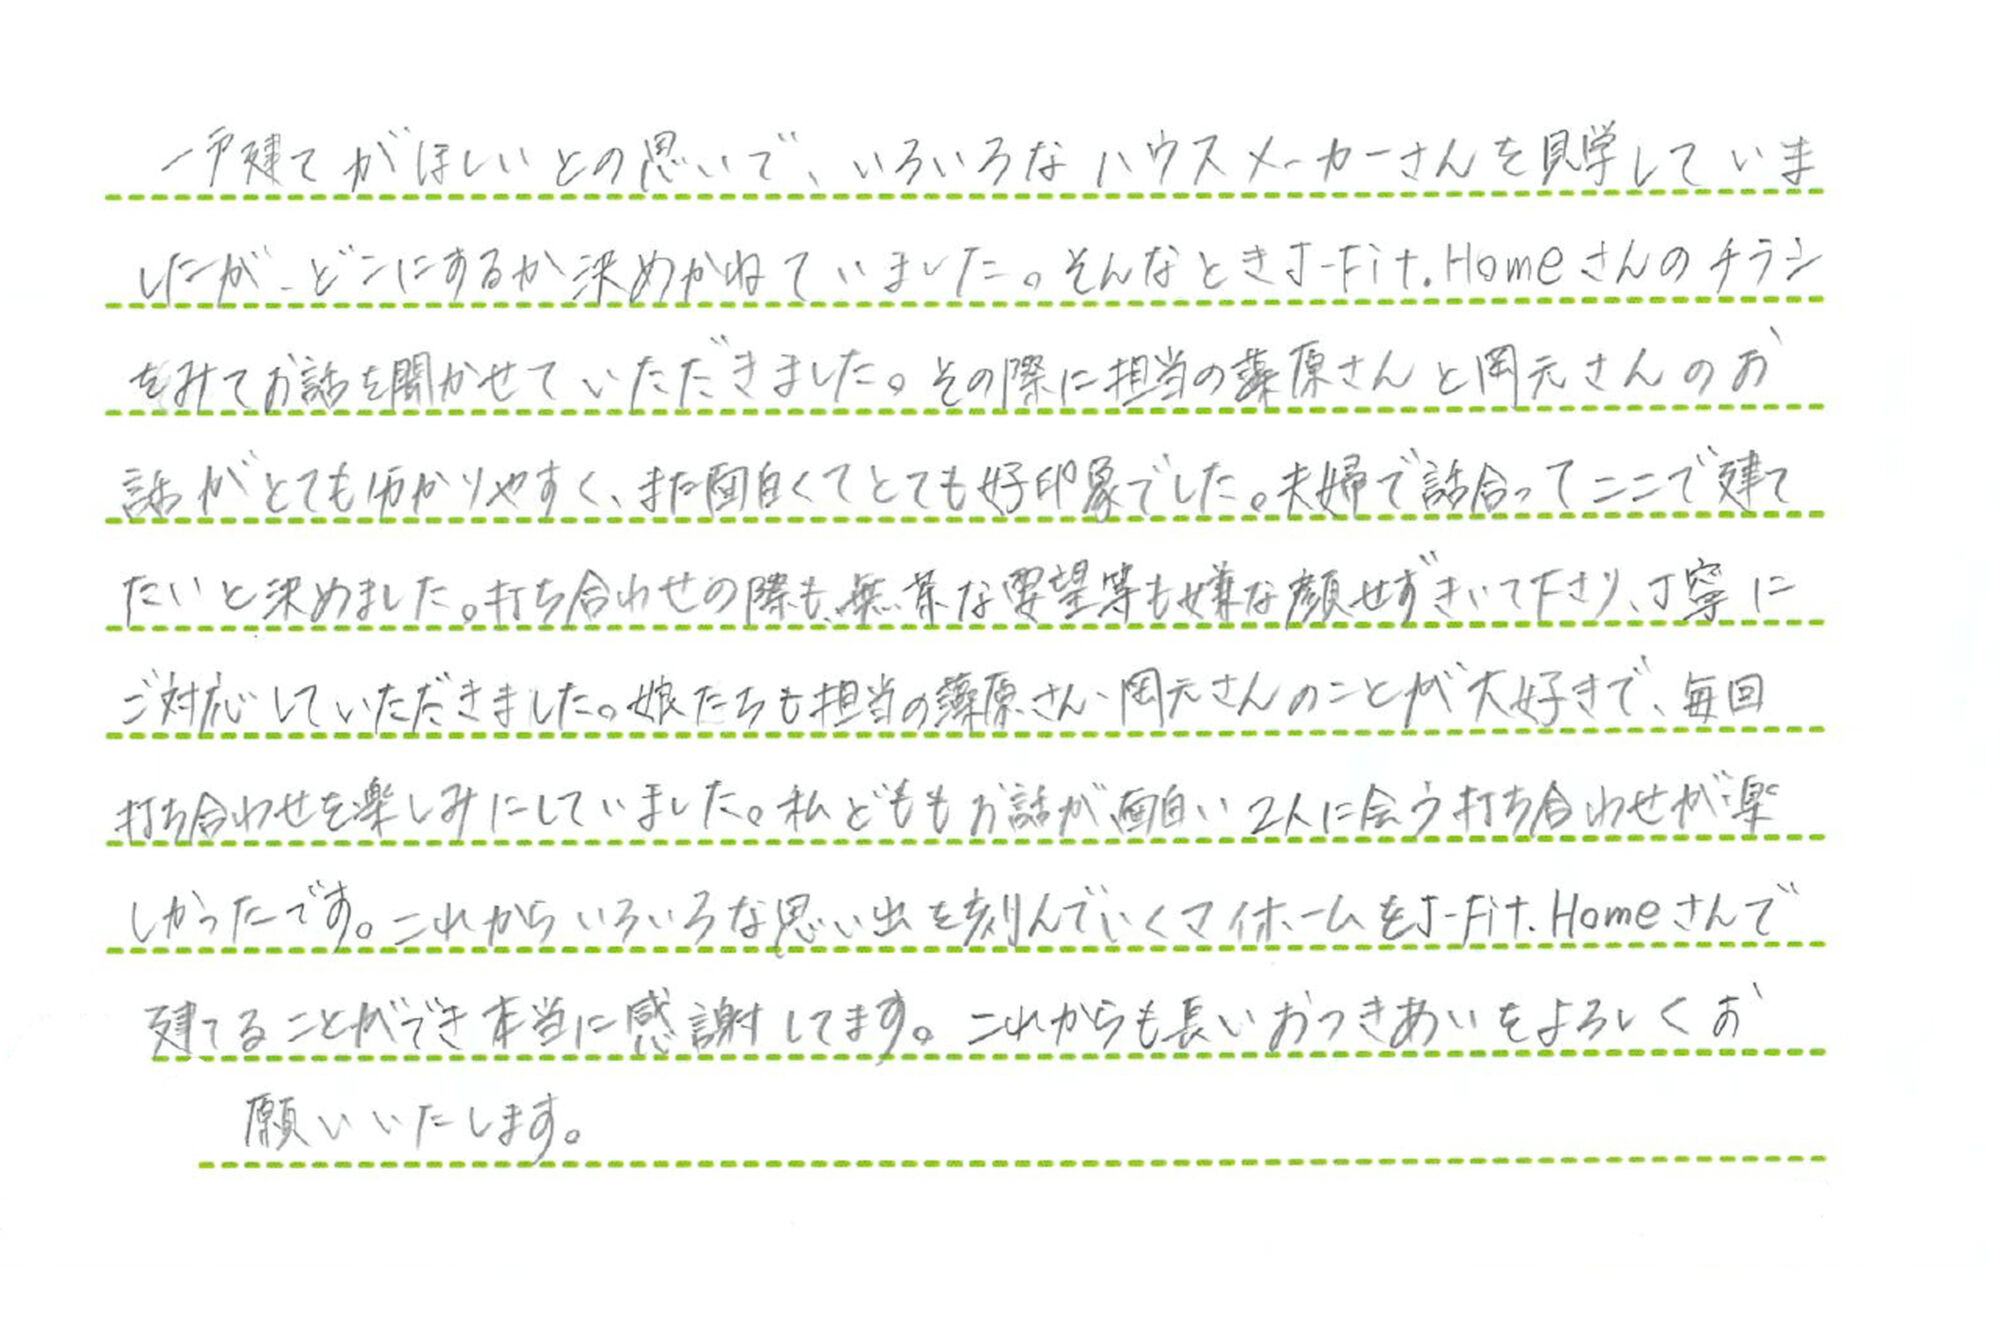 一戸建てがほしいとの思いで、いろいろなハウスメーカーさんを見学していま
したが、どこにするか決めかねていました。そんなときJ-Fit.Homeさんのチラシ
をみてお話を聞かせていただきました。その際に担当の藻原さんと岡元さんのお
話がとても分かりやすく、また面白くてとても好印象でした。夫婦で話合ってここで建て
たいと決めました。打ち合わせの際も、無茶な要望等も嫌な顔せずきいて下さり、丁寧に
ご対応していただきました。娘たちも担当の藻原さん、岡元さんのことが大好きで、毎回
打ち合わせを楽しみにしていました。私どももお話が面白い2人に会う打ち合わせが楽
しかったです。これからいろいろな思い出を刻んでいくマイホームをJ-Fit.Homeさんで
建てることができ本当に感謝してます。これからも長いおつきあいをよろしくお
願いいたします。